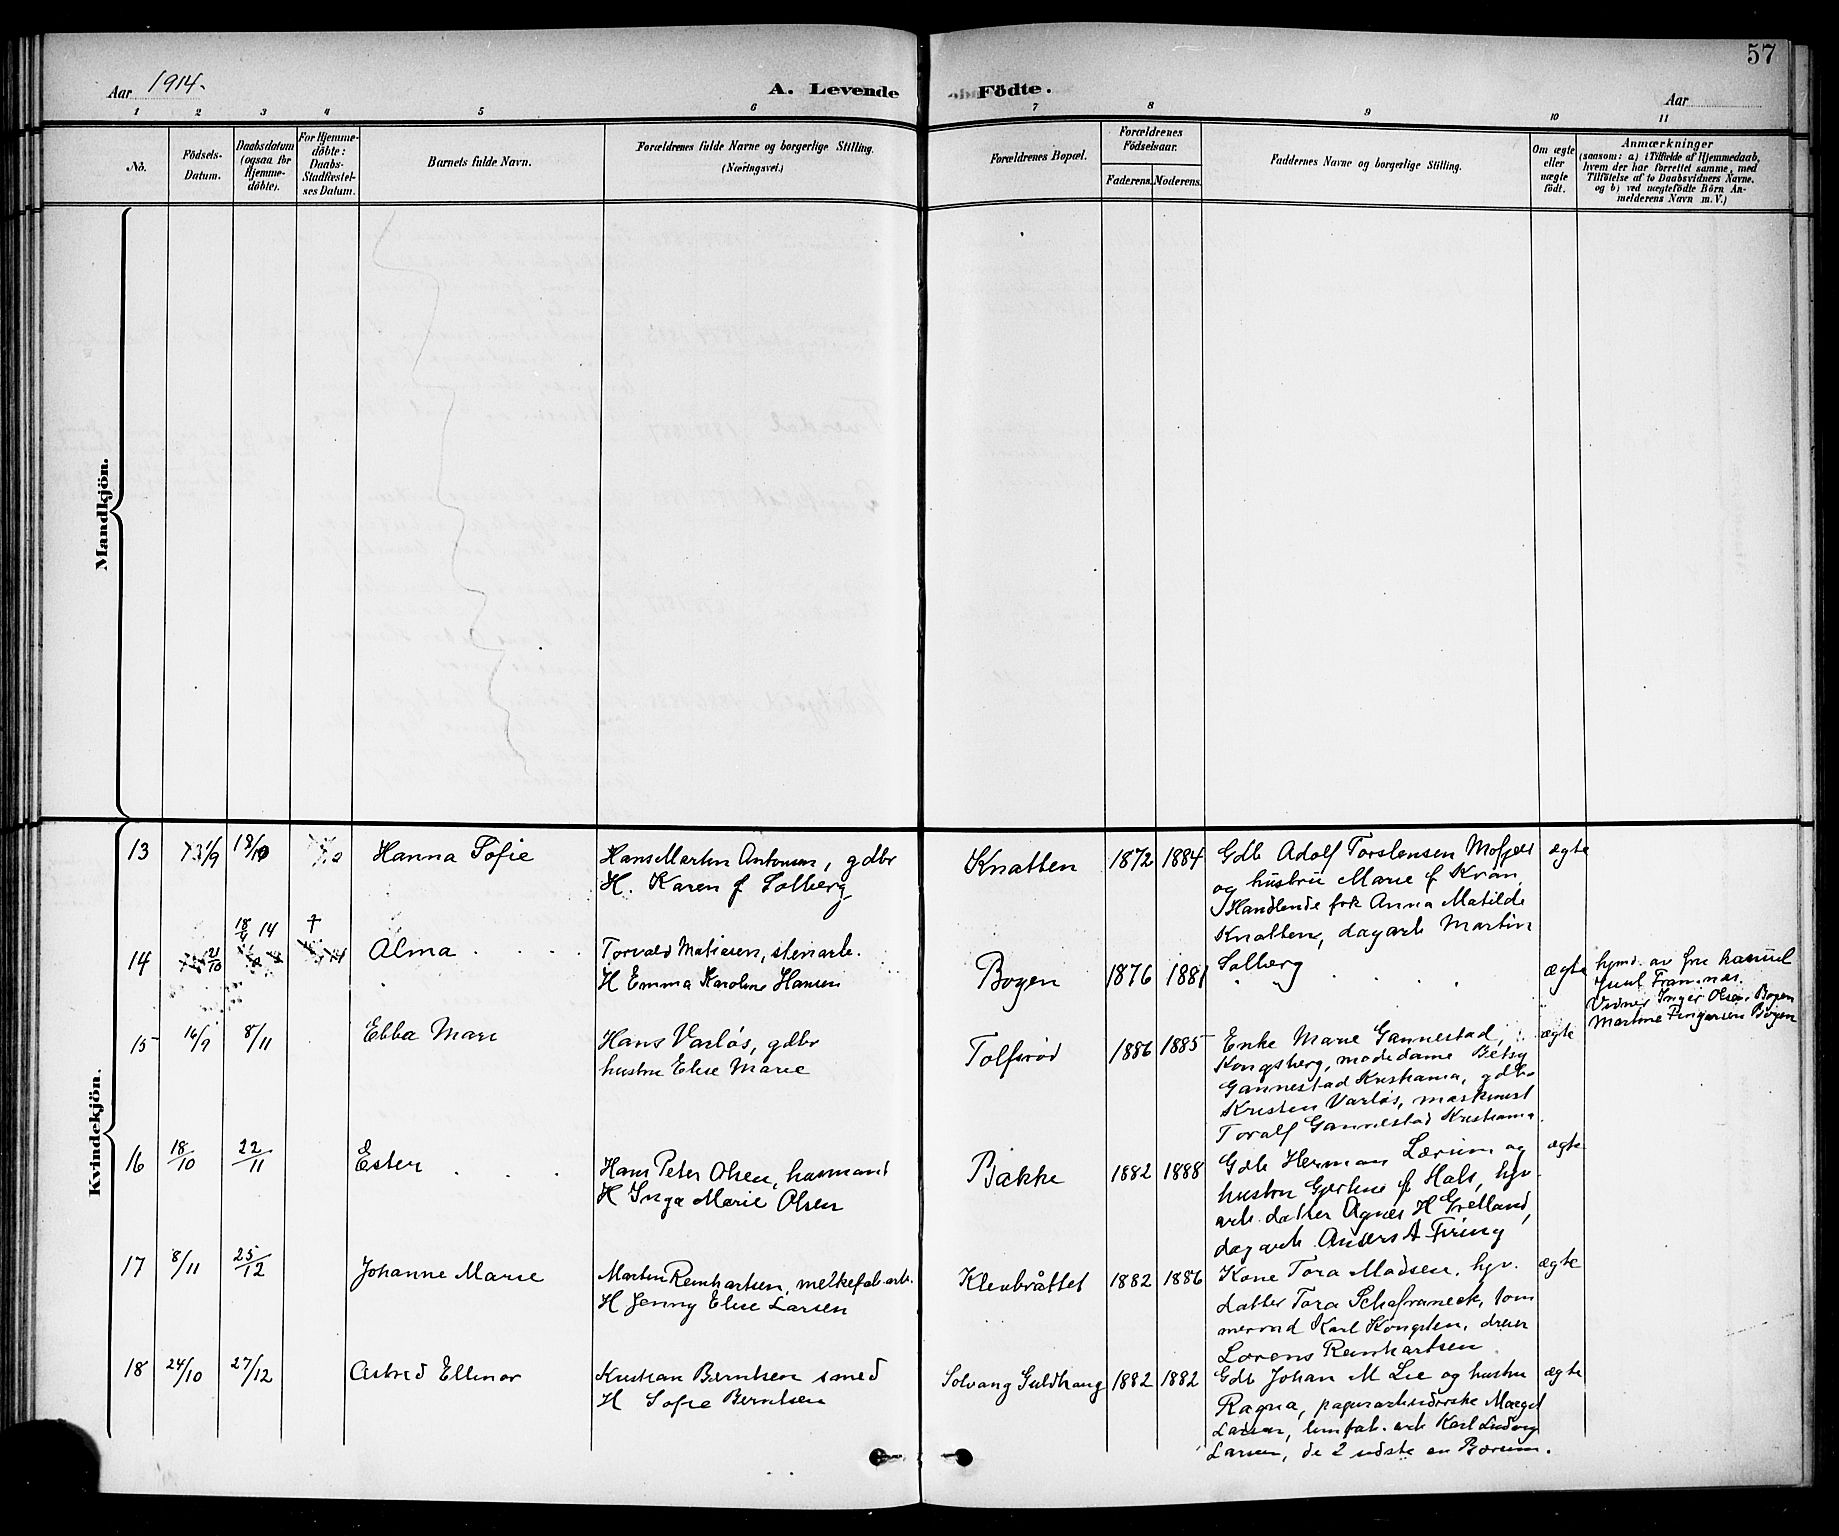 57
Aar 1914.
A. Levende Födte.
Aar
1 2 3 4 5 6 7 8 9 10 11
No.
Födsels-Datum.
Daabsdatum (ogsaa for Hjemme-döbte).
For Hjemme-döbte: Daabs-Stadfæstel-ses Datum.
Barnets fulde Navn.
Forældrenes fulde Navne og borgerlige Stilling.
(Næringsvei.)
Forældrenes Bopæl.
Forældrenes Födselsaar.
Faderens. Moderens.
Faddernes Navne og borgerlige Stilling.
Om ægte eller uægte födt.
Anmærkninger
(saasom: a) i Tilfælde af Hjemmedaab,
hvem der har forrettet samme, med
Tilföielse af to Daabsvidners Navne.
og b) ved uægtefödte Börn An-
melderens Navn m. V.)
Mandkjön.
Kvindekjön.
13 18/10 Hanna Sofie
Hans Martin Antonsen, gdbr
H. Karen f Solberg
Knatten 1872 1884
Gdb Adolf Torstensen Mofjeld
og hustru Marie f Kvan,
Handlende frk Anna Matilde
Knatten, dagarb Martin
Solberg
ægte
14 21/10 18/4 14 Alma
Torvald Matisen, stenarb.
H Emma Karoline Hansen
Bogen 1876 1881
ægte
hjmd. av fru
Juul Framnæs.
Vidner Inger Olsen Bogen
Martine Bogen
15 16/9 8/11 Ebba Mari
Hans Varlös, gdbr
hustru Elise Marie
Tolfsrød 1886 1885
Enke Marie Gannestad,
Kongsberg, modedame Betsy
Gannestad Kristiania, gdb.
Kristen Varlös, maskinist
Toralf Gannestad Kristiania
ægte
16 18/10 22/11 Ester
Hans Peter Olsen, havmand
H Inga Marie Olsen
Bakke 1882 1888
Gdb Herman Lærum og
hustru Gjertine f Hals, hjv.
arb. datter Agnes H Grelland,
dagarb. Anders A Firing
ægte
17 8/11 25/12 Johanne Marie
Martin Reinhartsen, melkefab.arb.
H Jenny Elise Larsen
Klenbråttet 1882 1886
Kone Tora Madsen, hjv.
datter Tora Schafraneck, tøm
mermd Karl Kongsten, dreier
Lorens Reinhartsen
ægte
18 24/10 27/12 Astrid Ellinor
Kristian Berntsen smed
H Sofie Berntsen
Solvang Guldhaug 1882 1882
Gdb Johan M Lie og hustru
Ragna, papirarbeiderske Margit
Larsen, limfab. arb Karl Ludvig
Larsen, de 2 sidste en Bærum.
ægte